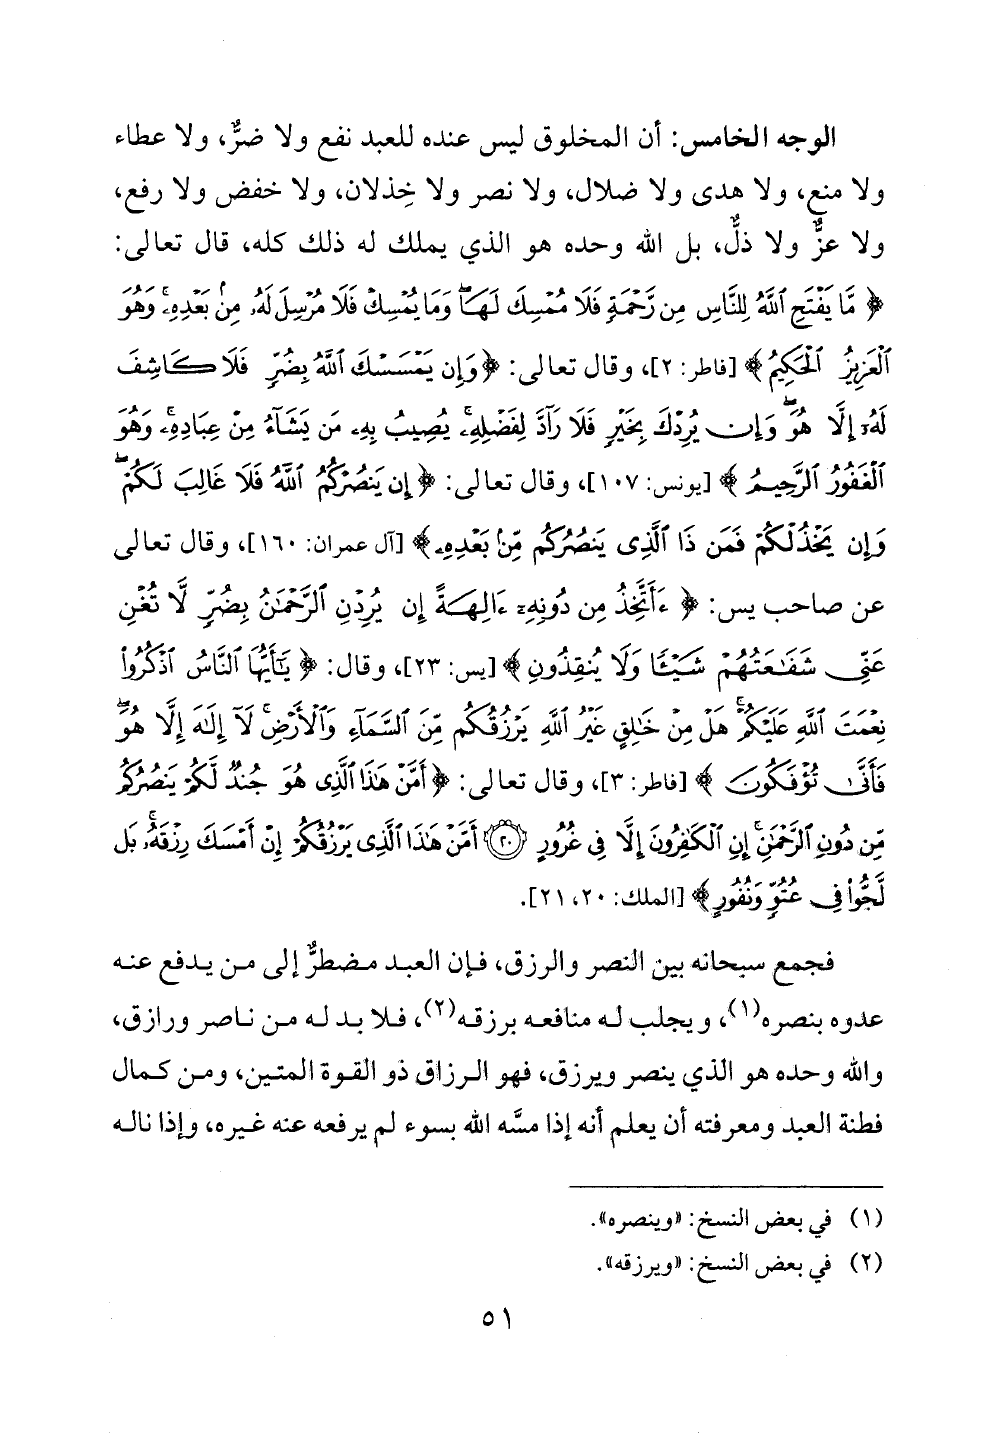 الوجه الخامس: أن المخلوق ليس عنده للعبد نفع ولا ضرٌّ، ولا عطاء
ولا منع، ولا هدى ولا ضلال، ولا نصر ولا خِذلان، ولا خفض ولا رفع،
ولا عزٌّ ولا ذلٌّ، بل الله وحده هو الذي يملك له ذلك كله، قال تعالى:
﴿ مَّا يَفْتَحِ ٱللَّهُ لِلنَّاسِ مِن رَّحْمَةٍ فَلَا مُمْسِكَ لَهَاۖ وَمَا يُمْسِكْ فَلَا مُرْسِلَ لَهُۥ مِنۢ بَعْدِهِۦۚ وَهُوَ
ٱلْعَزِيزُ ٱلْحَكِيمُ﴾ [فاطر: ٢]، وقال تعالى: ﴿وَإِن يَمْسَسْكَ ٱللَّهُ بِضُرٍّ فَلَا كَاشِفَ
لَهُۥٓ إِلَّا هُوَۖ وَإِن يُرِدْكَ بِخَيْرٍ فَلَا رَآدَّ لِفَضْلِهِۦۚ يُصِيبُ بِهِۦ مَن يَشَآءُ مِنْ عِبَادِهِۦۚ وَهُوَ
ٱلْغَفُورُ ٱلرَّحِيمُ ﴾ [يونس: ١٠٧]، وقال تعالى: ﴿ إِن يَنصُرْكُمُ ٱللَّهُ فَلَا غَالِبَ لَكُمْۖ
وَإِن يَخْذُلْكُمْ فَمَن ذَا ٱلَّذِى يَنصُرُكُم مِّنۢ بَعْدِهِۦ﴾ [آل عمران: ١٦٠]، وقال تعالى
عن صاحب يس: ﴿ ءَأَتَّخِذُ مِن دُونِهِۦٓ ءَالِهَةً إِن يُرِدْنِ ٱلرَّحْمَٰنُ بِضُرٍّ لَّا تُغْنِ
عَنِّى شَفَٰعَتُهُمْ شَيْـًٔا وَلَا يُنقِذُونِ﴾ [يس: ٢٣]، وقال: ﴿ يَٰٓأَيُّهَا ٱلنَّاسُ ٱذْكُرُوا۟
نِعْمَتَ ٱللَّهِ عَلَيْكُمْۚ هَلْ مِنْ خَٰلِقٍ غَيْرُ ٱللَّهِ يَرْزُقُكُم مِّنَ ٱلسَّمَآءِ وَٱلْأَرْضِۚ لَآ إِلَٰهَ إِلَّا هُوَۖ
فَأَنَّىٰ تُؤْفَكُونَ ﴾ [فاطر: ٣]، وقال تعالى: ﴿ أَمَّنْ هَٰذَا ٱلَّذِى هُوَ جُندٌ لَّكُمْ يَنصُرُكُم
مِّن دُونِ ٱلرَّحْمَٰنِۚ إِنِ ٱلْكَٰفِرُونَ إِلَّا فِى غُرُورٍ ۝٢٠ أَمَّنْ هَٰذَا ٱلَّذِى يَرْزُقُكُمْ إِنْ أَمْسَكَ رِزْقَهُۥۚ بَل
لَّجُّوا۟ فِى عُتُوٍّ وَنُفُورٍ﴾ [الملك: ٢٠، ٢١].
فجمع سبحانه بين النصر والرزق، فإن العبد مضطرٌّ إلى من يدفع عنه
عدوه بنصره(١)، ويجلب له منافعه برزقه(٢)، فلا بد له من ناصر ورازق،
والله وحده هو الذي ينصر ويرزق، فهو الرزاق ذو القوة المتين، ومن كمال
فطنة العبد ومعرفته أن يعلم أنه إذا مسَّه الله بسوء لم يرفعه عنه غيره، وإذا ناله
(١) في بعض النسخ: «وينصره».
(٢) في بعض النسخ: «ويرزقه».
٥١